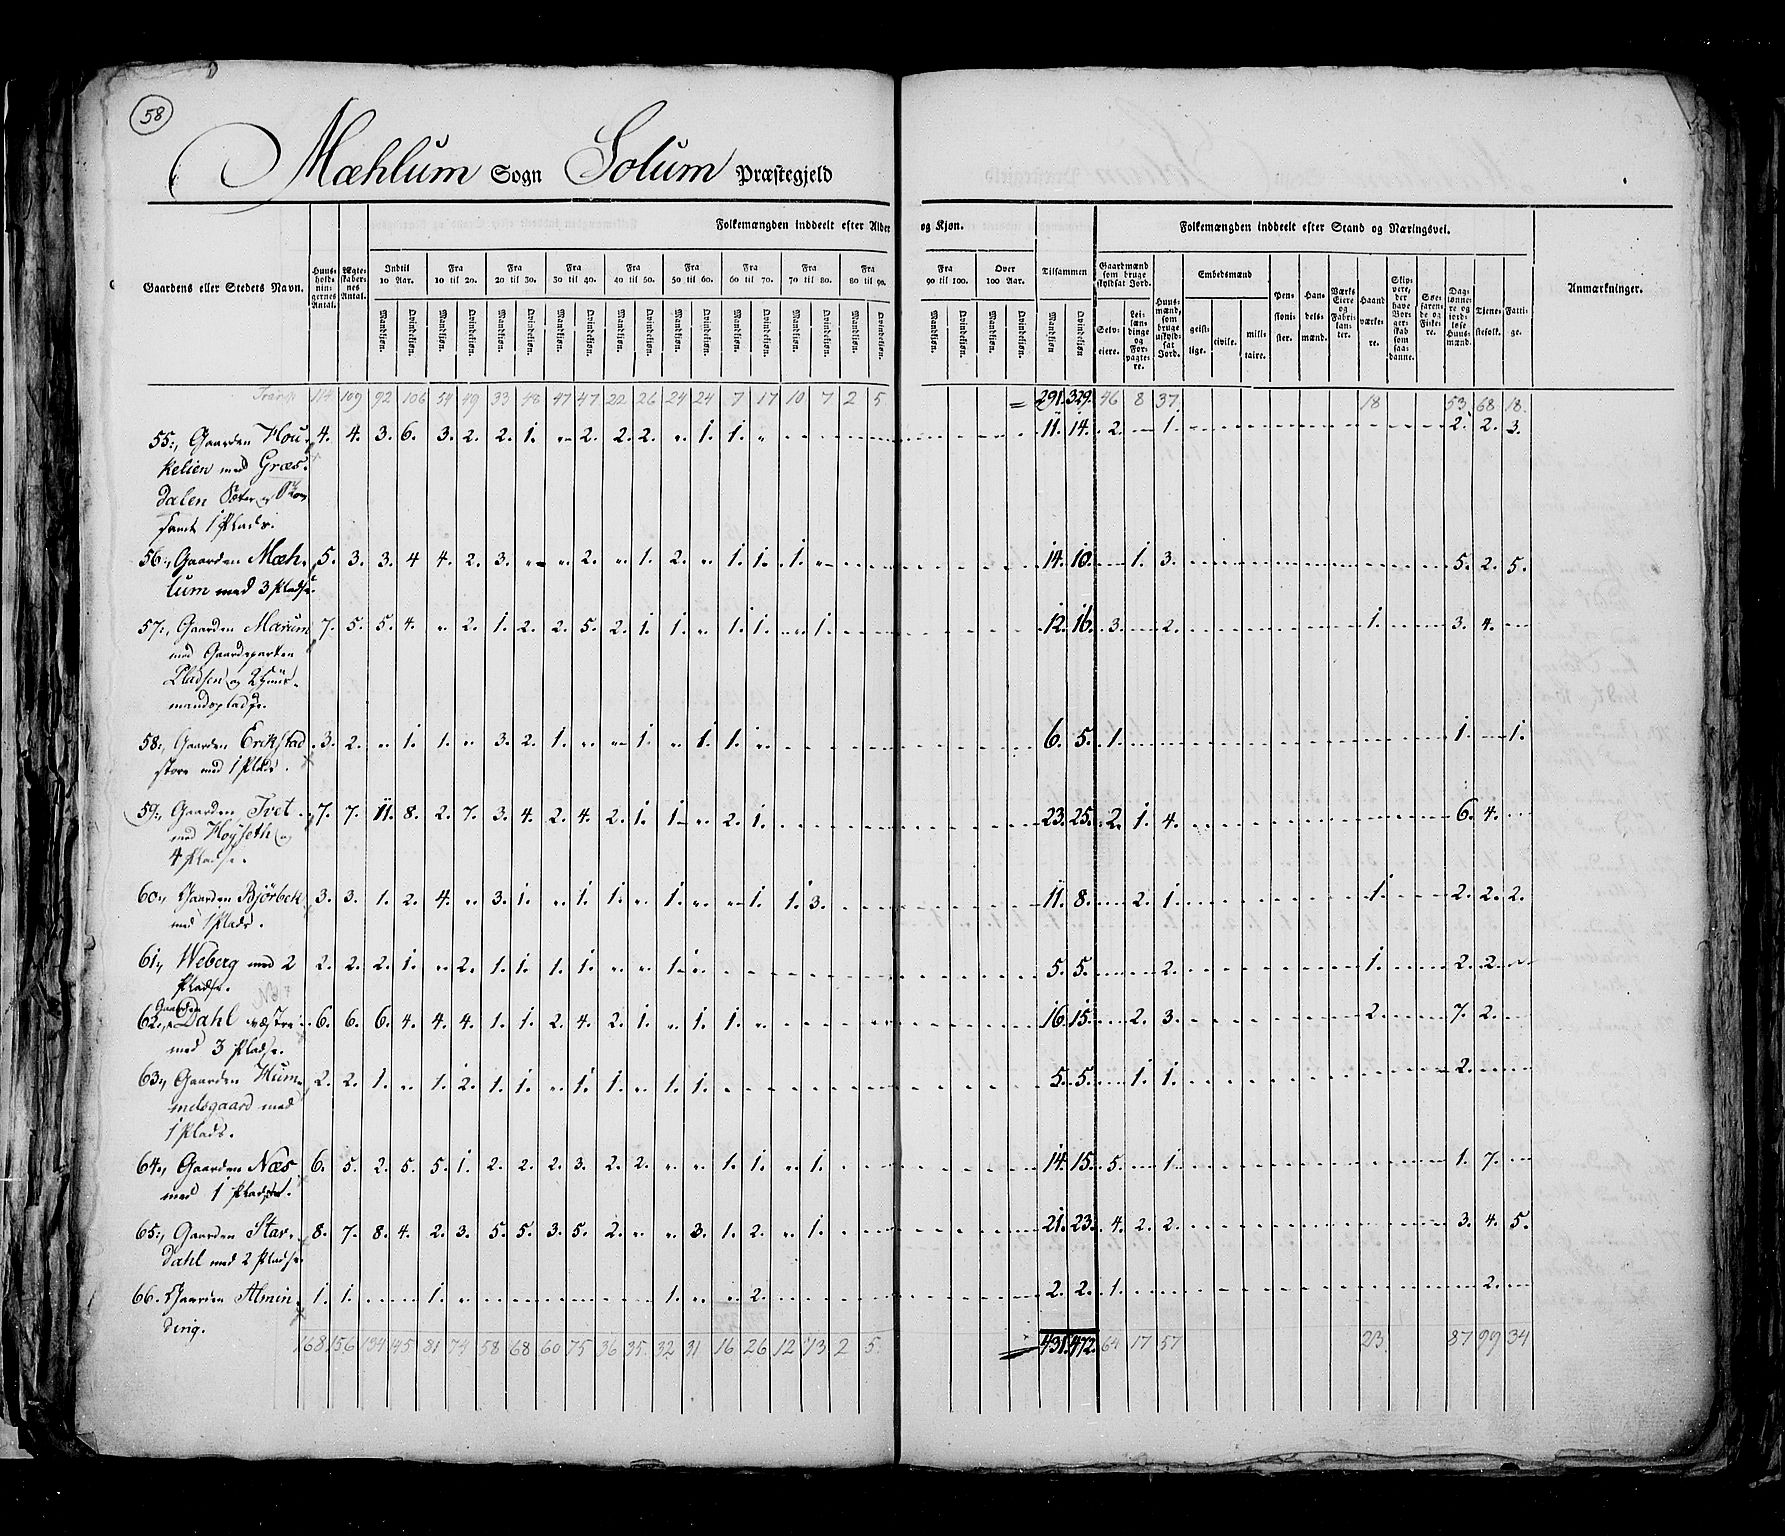 58
Mæhlum Sogn Solum Præstegjeld
Folkemængden inddeelt efter Alder og Kjøn.
Folkemængden inddeelt efter Stand og Næringsvei.
Gaardens eller Stedets Navn.
Huus-holdnin-gernes Antal.
Ægte-skaber-nes Antal.
Indtil 10 Aar.
Fra 10 til 20.
Fra 20 til 30.
Fra 30 til 40.
Fra 40 til 50.
Fra 50 til 60.
Fra 60 til 70.
Fra 70 til 80.
Fra 80 til 90.
Fra 90 til 100.
Over 100 Aar.
Tilsammen
Mandkiøn. Qvindekiøn.
Gaardmænd som bruge skyldsat Jord.
Selv-eiere.
Lei-lændinge og For-pagte-re.
Huus-mænd, som bruge uskyld-sat Jord.
Embedsmænd
geist-lige.
civile.
mili-taire.
Pen-sioni-ster.
Han-dels-mænd.
Værks Eiere og Fabri-kan-ter.
Haand værke-re.
Skip-pere, der have Bor-ger-skab som saa-danne.
Søe-faren-de og Fiske-re.
Dag-lønne-re og jord-løse Huus-mænd.
Tiene-stefolk.
Fatti-ge.
Anmærkninger.
Transp 114 109 92 106 54 49 33 48 47 47 22 26 24 24 7 17 10 7 2 5 291. 329. 46 8 37. 18 53 68 18.
55., Gaarden Hou- 4. 4. 3. 6. 3. 2. 2. 1. " 2. 2. 2. " 1. 1. " 11. 14. 2. 1. 2. 2. 3.
kelien med Græs-
dalen
samt 1 Plads.
56., Gaarden Mæh- 5. 3. 3. 4 4. 2. 3. " " 2. " 1. 2. " 1. 1. 1. " 14. 10. 1. 3. 5. 2. 5.
lum med 3 Pladse.
57., Gaarden Mærum 7. 5. 5. 4. " 2. 1. 2. 2. 5. 2. 1. 1. " 1. 1. " 1. 12. 16. 3. 2. 1. 3. 4.
med Gaardeparten
Pladsen og 2 Huus-
mandspladse.
58., Gaarden Erikstad 3. 2. " 1. 1. " 3. 2. 1. " " 1. " 1. 1. " 6. 5. 1. 1. 1.
store med 1 Plads.
59., Gaarden Tvet 7. 7. 11. 8. 2. 7. 3. 4. 2. 4. 2. 1. 1. " 2. 1. 23. 25. 2. 1. 4. 6. 4.
med Høyseth og
4 Pladse.
60., Gaarden Bjørbek 3. 3. 1. 2. 4. " 3. 1. " 1. 1. " 1. " " 1. 1. 3. 11. 8. 2. 1. 1. 2. 2. 2.
med 1 Plads.
61., Weberg med 2 2. 2. 2. 1. " 2. 1. 1. 1. 1. " " 1. " 5. 5. 2. 1. 2. 2.
Pladse.
62., Gaarden Dahl vestre 6. 6. 6. 4. 4. 4. 1. 1. 2. 4. 2. 1. " 1. 1. " 16. 15. 2. 3. 2. 7. 2.
med 3 Pladse.
63., Gaarden Hum- 2. 2. 1. " 1. 2. 1. 1. " 1. 1. " 1. 1. 5. 5. 1. 1. 2.
melsgaard med
1 Plads.
64., Gaarden Næs 6. 5. 2. 5. 5. 1. 2. 2. 2. 3. 2. 2. " " 1. 1. " 1. 14. 15. 5. 1. 1. 7.
med 1 Plads.
65., Gaarden Star- 8. 7. 8. 4. 2. 3. 5. 5. 3. 5. 2. " " 3. 1. 2. " 1. 21. 23. 4. 2. 2. 3. 4. 5.
dahl med 2 Pladse.
66. Gaarden Almin- 1. 1. 1. " 1. " " 2. 2. 2. 1. 2.
ding.
168 156 134 145 81 74 58 68 60 75 36 35. 32 31 16 26 12 13 2 5. 431. 472. 64 17 57 23. 87 99 34